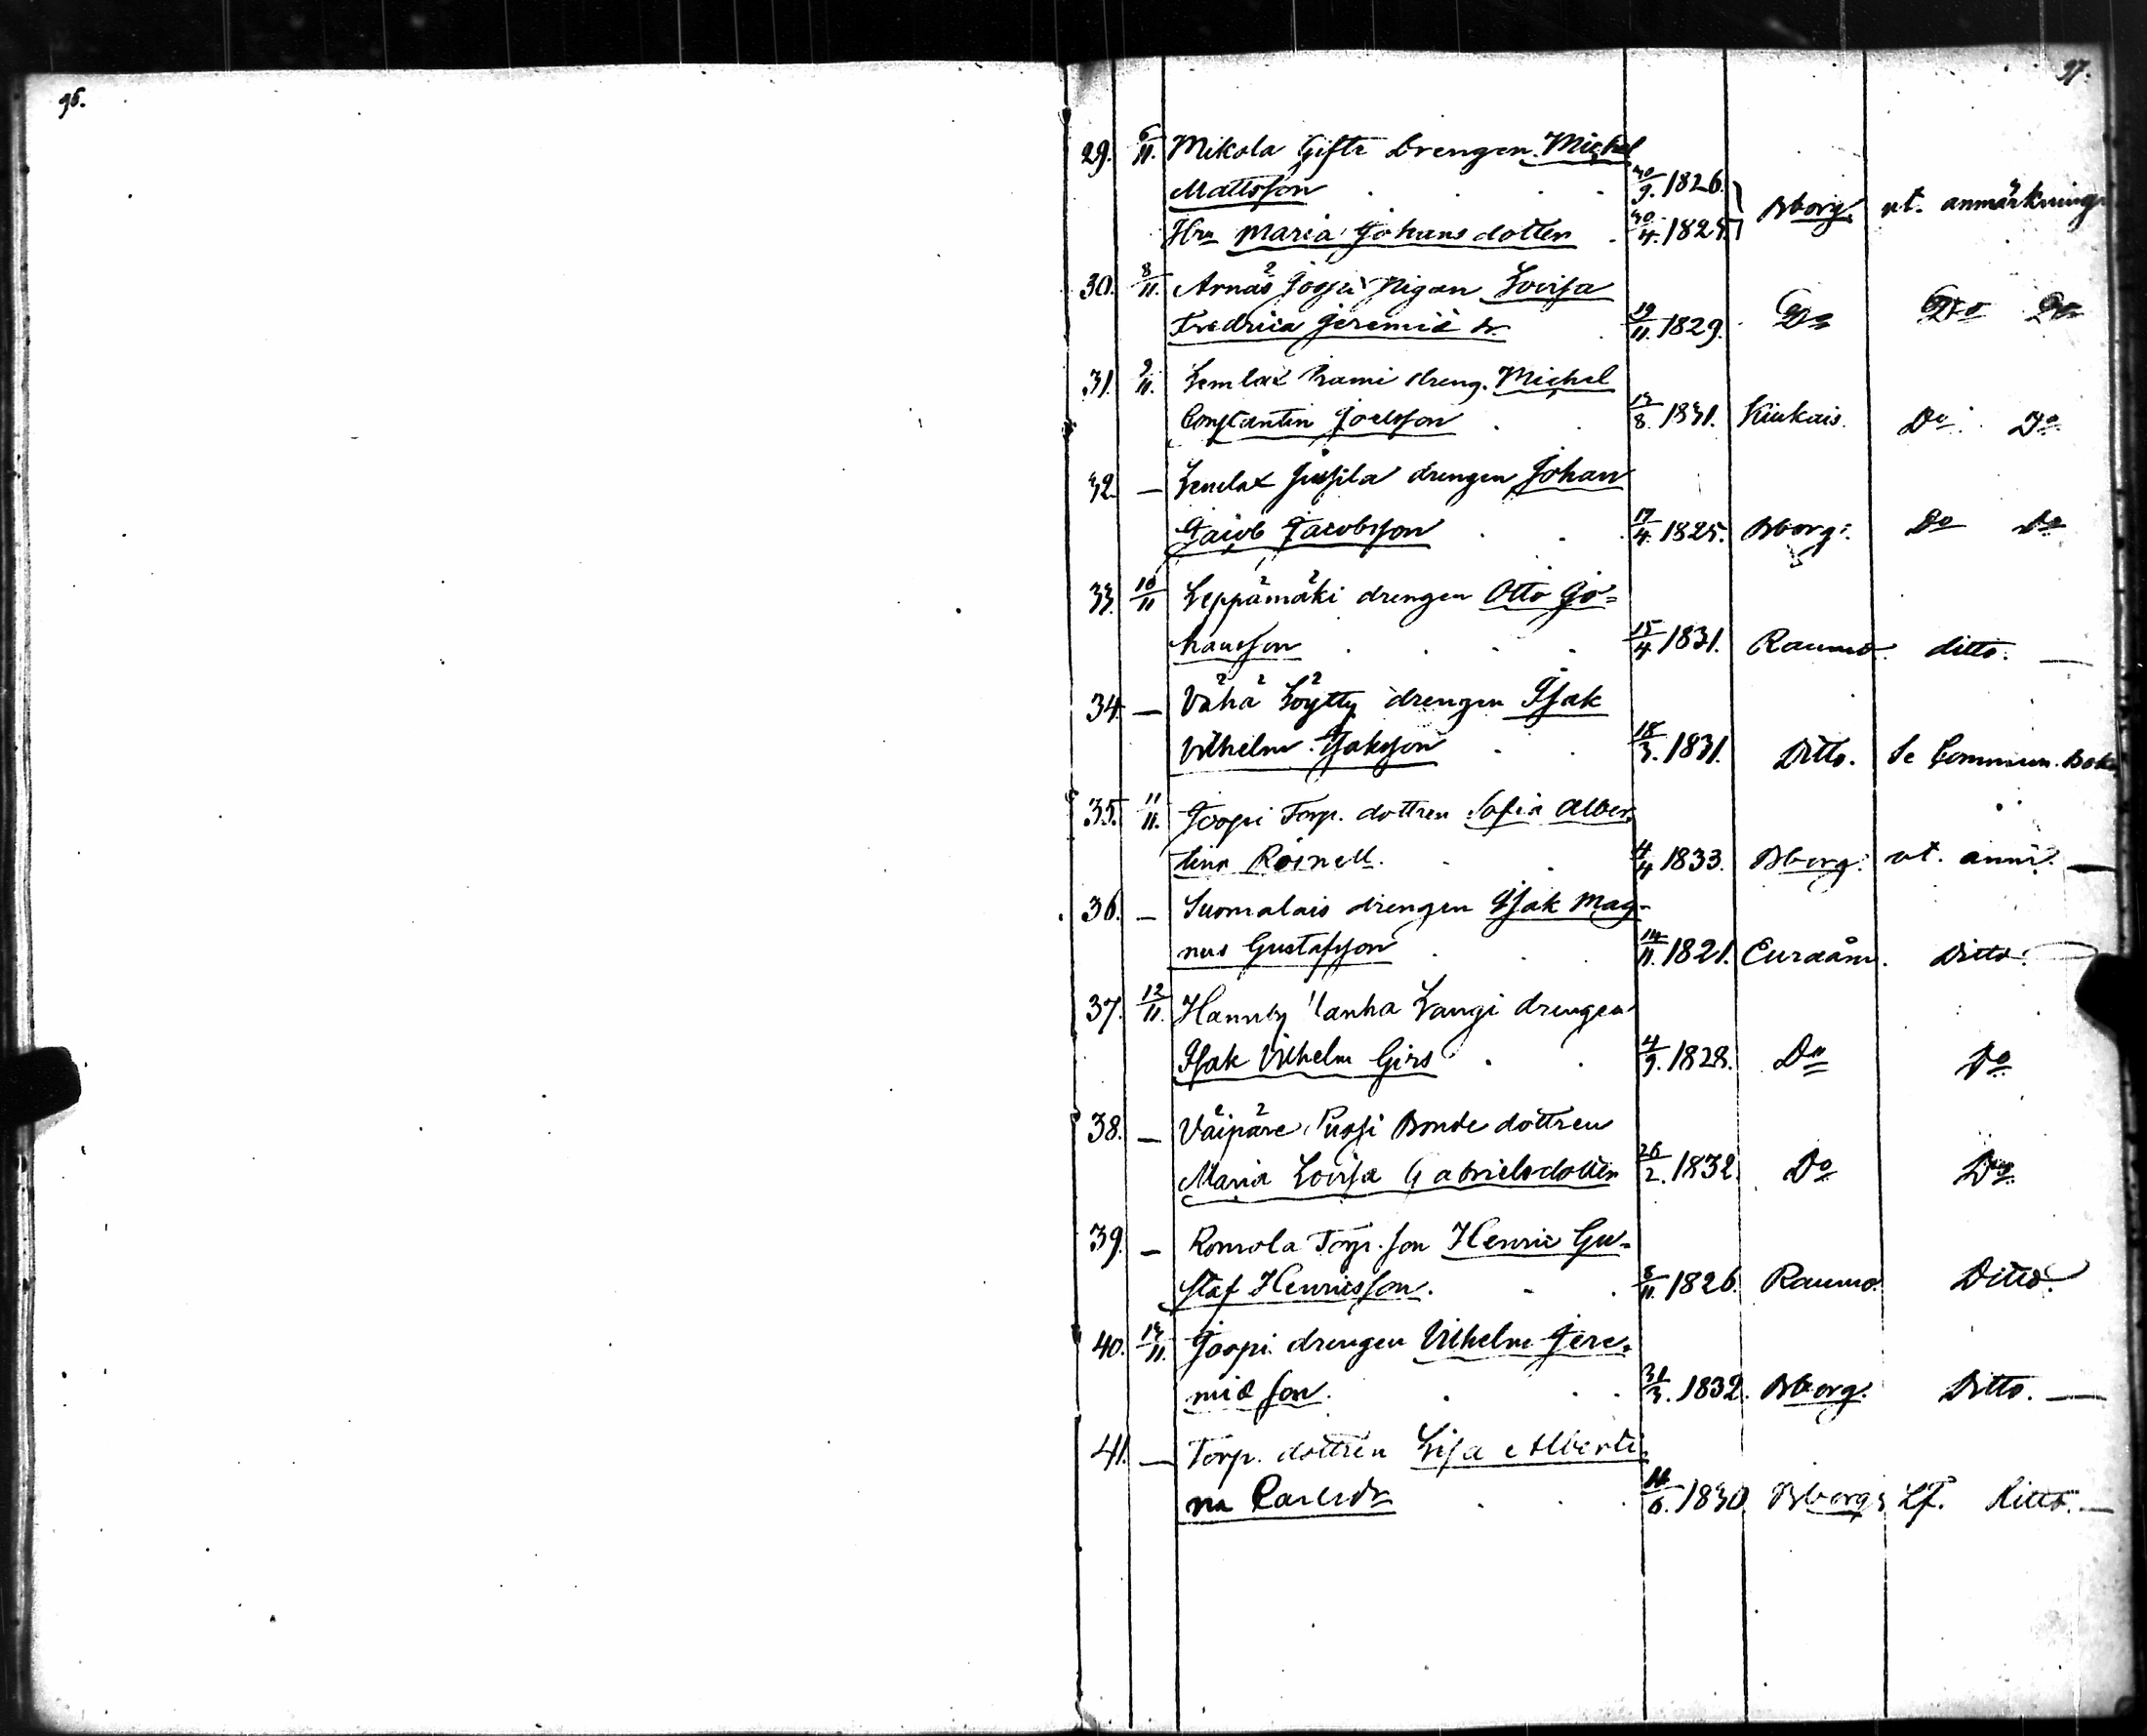 96.
97.
29. 6/11. Mikola Gifte Drengen Michel
Mattsson 30/9. 1826.
Hru Maria Johansdotter 30/4. 1825. Bborg. ut. anmärkning
30. 8/11. Arnäs Joopi Pigan Lovisa
Fredrica Jeremiæ dr. 19/11. 1829. Do Do Do
31. 9/11. Lemlax Prami dreng. Michel
Constantin Joelsson 13/8. 1831. Kiukais. Do Do
32. — Lemlax Jussila drengen Johan
Jacob Jacobsson 17/4. 1825. Bborg: Do Do
33. 10/11 Leppämäki drengen Otto Jo=
hansson 15/4 1831. Raumo. ditto. —
34. — Vähä Löytty drengen Isak
Vilhelm Isaksson 18/3. 1831. Ditto. Se Commun. Bok.
35. 11/11. Joopi Torp. dottren Sofia Alber=
tina Roinell. 4/4 1833. Bborg: ut. anm. —
36. — Suomalais drengen Isak Mag-
nus Gustafsson 14/11. 1821. Euraåm. Ditto.
37. 12/11. Hannby Vanha Langi drengen
Isak Vilhelm Girs 4/9. 1828. Do Do
38. — Väipäre Pussi Bonde dottren
Maria Lovisa Gabrielsdotter 26/2. 1832. Do Do
39. — Romola Torp. son Henric Gu=
staf Henricsson. 8/11. 1826. Raumo. Ditto.
40. 13/11. Joopi drengen Vilhelm Jere=
miæ son. 31/3. 1832. Bborg. Ditto. —
41. — Torp. dottren Lisa Alberti=
na Carlsdr 11/6. 1830. Bborgs Lf. Ditto. —